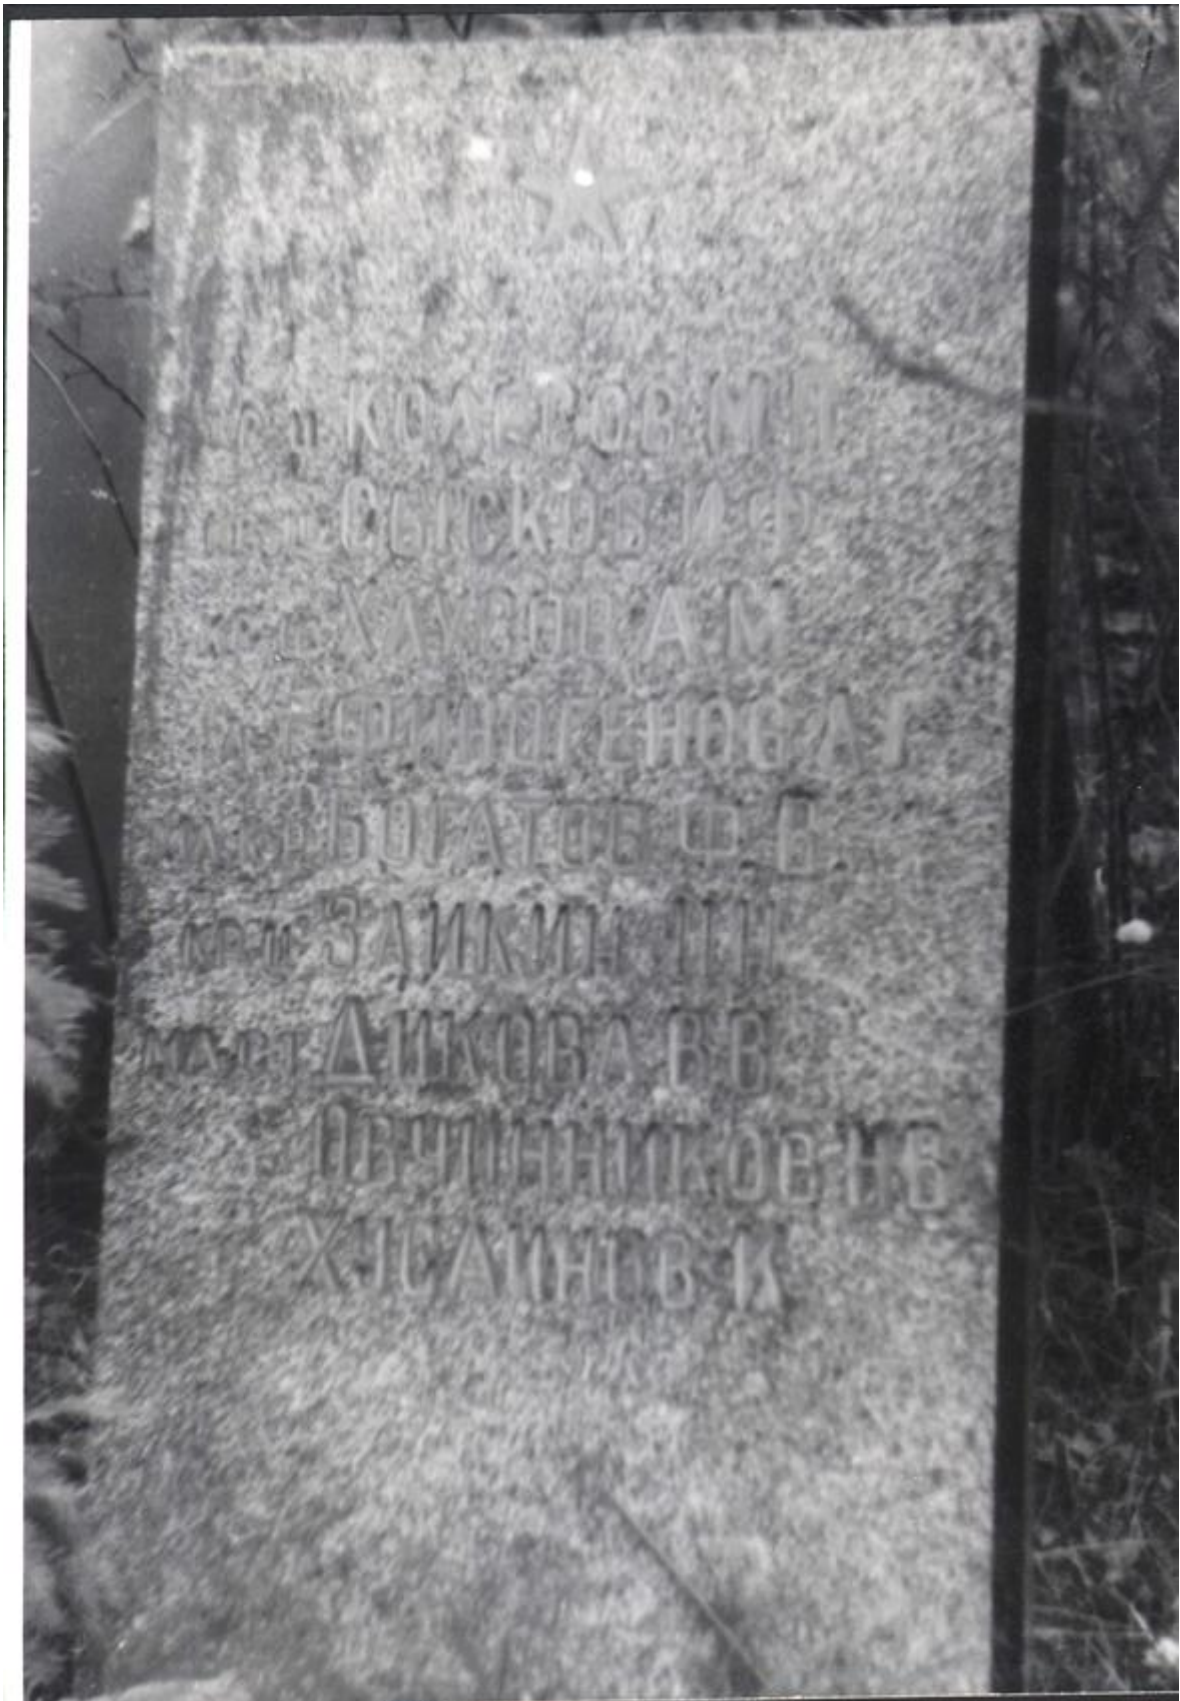 КОЛЕСОВ М П
СЫСКОВ И Ф
ХАУСОВ А М
ФИНОГЕНОВ А Г
БОГАТОВ Ф В
КР-Ц ЗАИКИН П Н
МЛ С-Т ДИКОВА В В
ОВЧИННИКОВ Н В
ХУСАИНОВ К